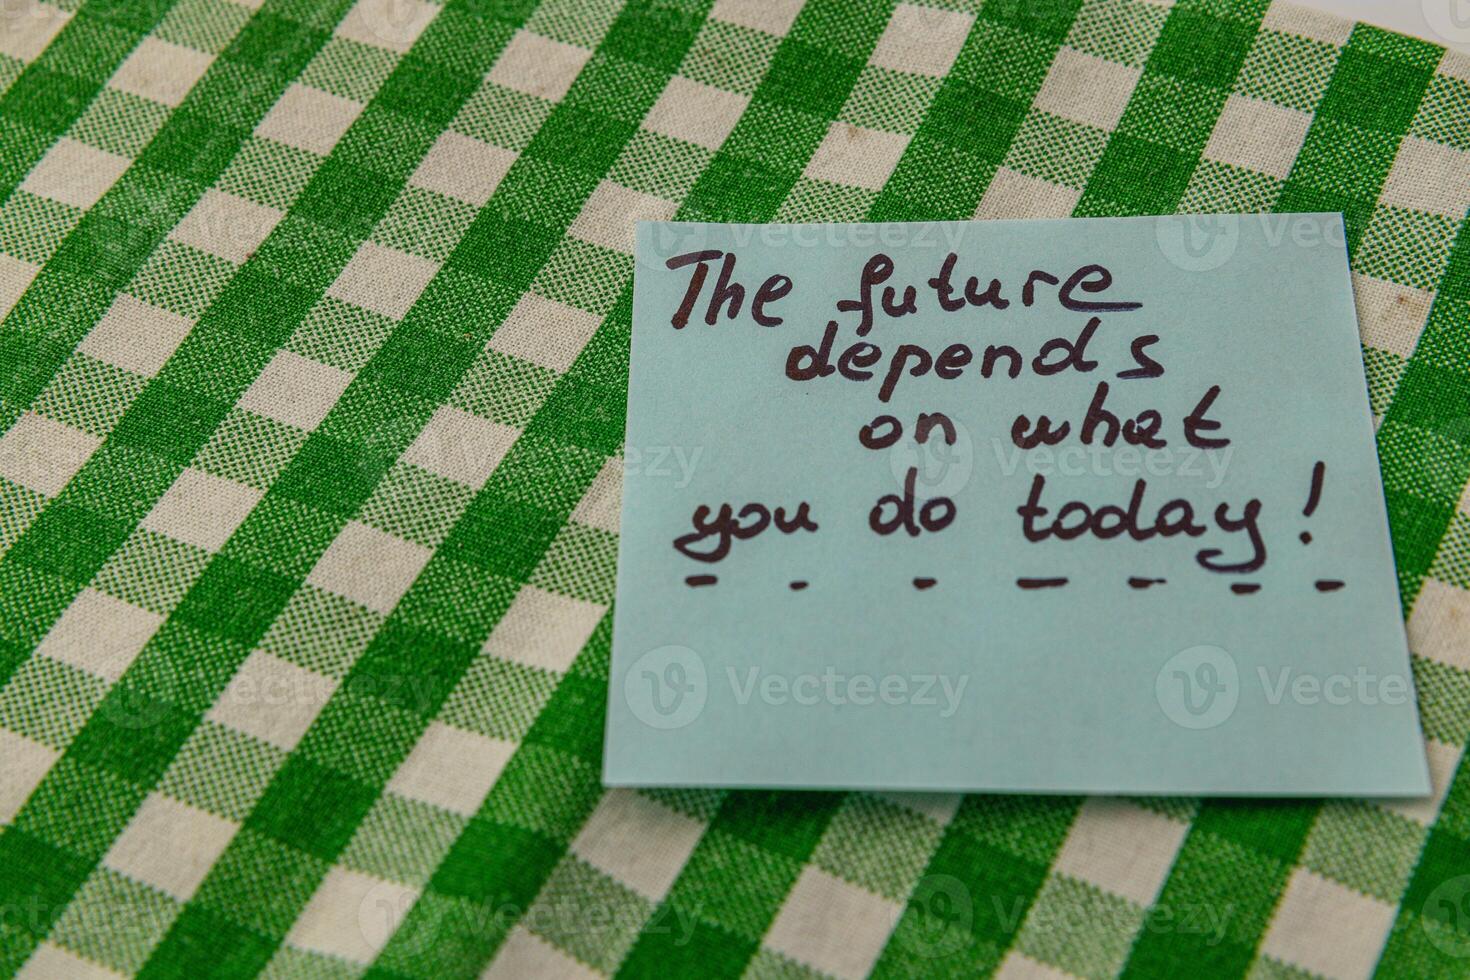 The future
depends
on what
you do today!
Vecteezy
Vecteezy